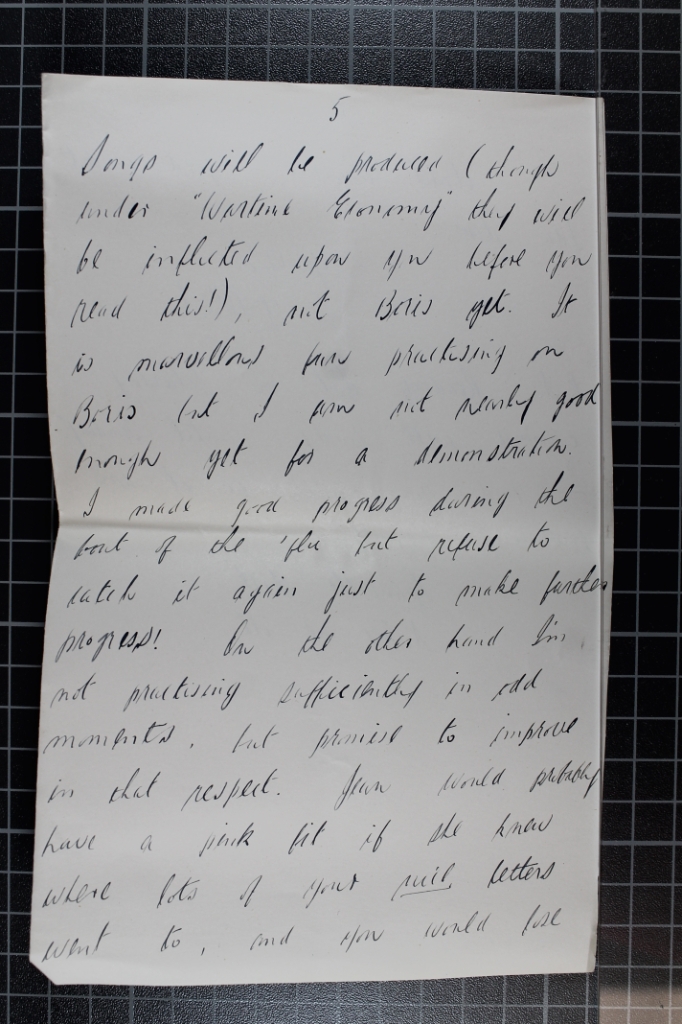 5
Songs will be produced (though
under "Wartime Economy" they will
be inflicted upon you before you
read this!), not Boris yet. It
is marvellous fun practising on
Boris but I am not nearly good
enough yet for a demonstration.
I made good progress during the
bout of the 'flu but refuse to
catch it again just to make further
progress! On the other hand I'm
not practising sufficiently in odd
moments, but promise to improve
in that respect. Jean would probably
have a pink fit if she knew
where lots of your nice letters
went to, and you would lose